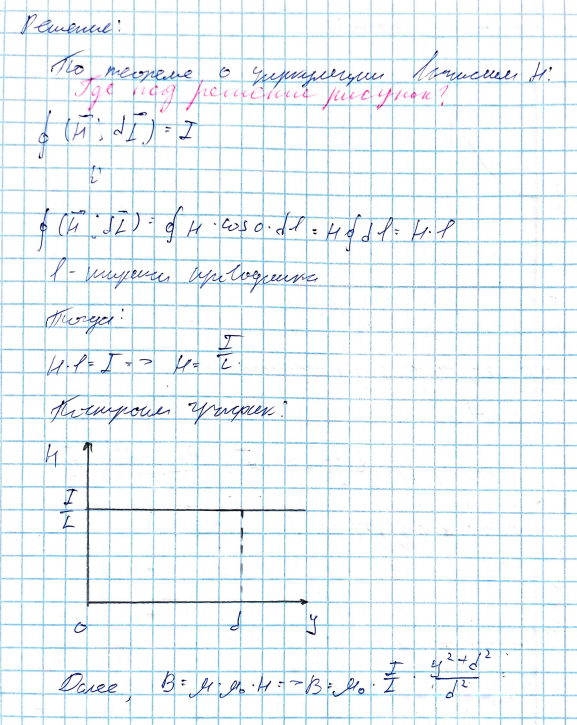 Решение:
По теореме о циркуляции вычислим H:
Где под решение рисунок?
∮ (H⃗ ; dl⃗) = I
L
∮ (H⃗ ; dl⃗) = ∮ H · cos 0 · dl = H ∮ dl = H · l
l - ширина проводника
Тогда:
H · l = I => H = I/L.
Построим график:
H
I/L
0 d y
Далее, B = μ · μ₀ · H => B = μ₀ · I/L · (y² + d²)/d² :